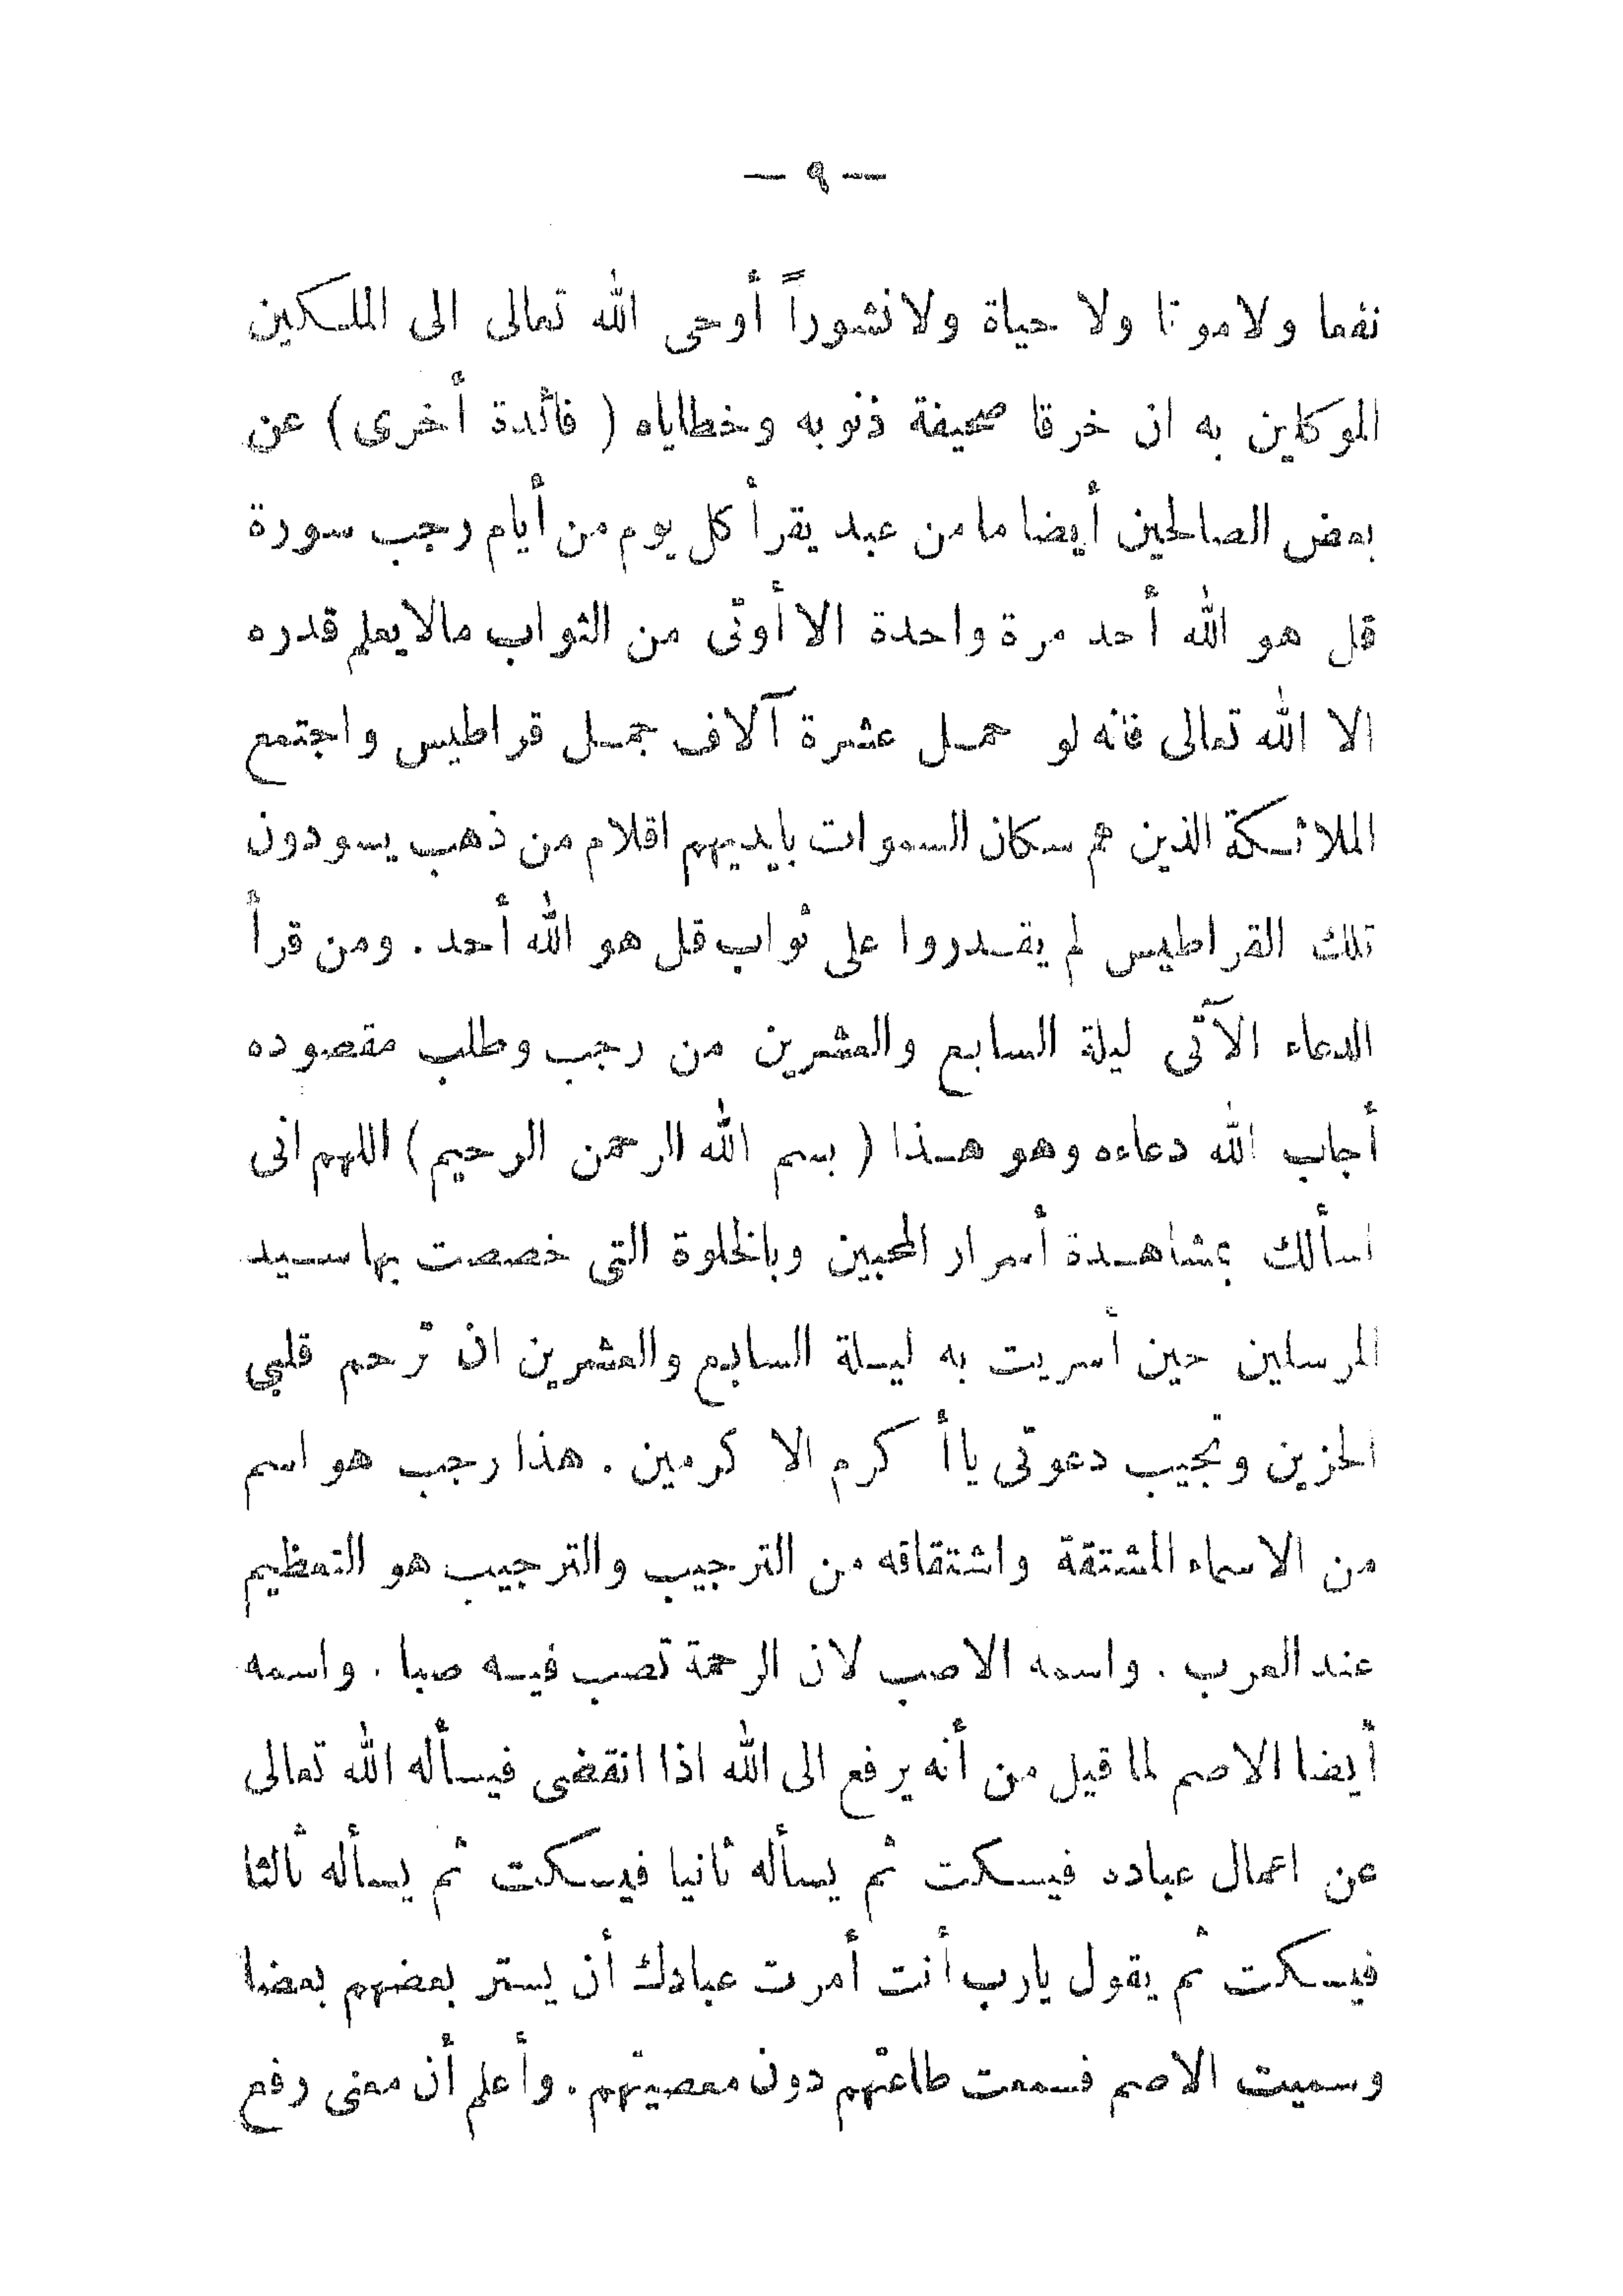 — ٩ —
نفعا ولا موتا ولا حياة ولا نشوراً أوحى الله تعالى الى الملكين
الموكلين به ان خرقا صحيفة ذنوبه وخطاياه ( فائدة أخرى ) عن
بعض الصالحين أيضا ما من عبد يقرأ كل يوم من أيام رجب سورة
قل هو الله أحد مرة واحدة الا أوتى من الثواب مالا يعلم قدره
الا الله تعالى فانه لو حمل عشرة آلاف جمل قراطيس واجتمع
الملائكة الذين هم سكان السموات بايديهم اقلام من ذهب يسودون
تلك القراطيس لم يقدروا على ثواب قل هو الله أحد . ومن قرأ
الدعاء الآتى ليلة السابع والعشرين من رجب وطلب مقصوده
أجاب الله دعاءه وهو هذا ( بسم الله الرحمن الرحيم ) اللهم انى
اسألك بمشاهدة أسرار المحبين وبالخلوة التى خصصت بها سيد
المرسلين حين أسريت به ليلة السابع والعشرين ان ترحم قلبي
الحزين وتجيب دعوتى يا أكرم الاكرمين . هذا رجب هو اسم
من الاسماء المشتقة واشتقاقه من الترجيب والترجيب هو التعظيم
عند العرب . واسمه الاصب لان الرحمة تصب فيه صبا . واسمه
أيضا الاصم لما قيل من أنه يرفع الى الله اذا انقضى فيسأله الله تعالى
عن اعمال عباده فيسكت ثم يسأله ثانيا فيسكت ثم يسأله ثالثا
فيسكت ثم يقول يارب أنت أمرت عبادك أن يستر بعضهم بعضا
وسميت الاصم فسمعت طاعتهم دون معصيتهم . وأعلم أن معنى رفع